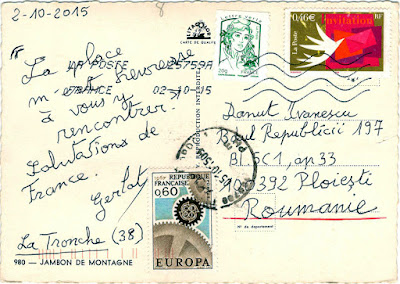 2-10-2015
8
La place
m- est heureuse
à vous y
rencontrer.
Salutations de
France.
Gerlat
La Tronche (38)
980 — JAMBON DE MONTAGNE
CARTE DE QUALITÉ
LA POSTE 25759A
FRANCE 02-10-15
20g
0,46€ Invitation RF
La Poste
Danut Ivanescu
Bdul Republicii 197
Bl 5C1, ap 33
100392 Ploiești
Roumanie
N° du département
1967
RÉPUBLIQUE
FRANÇAISE
0,60
EUROPA